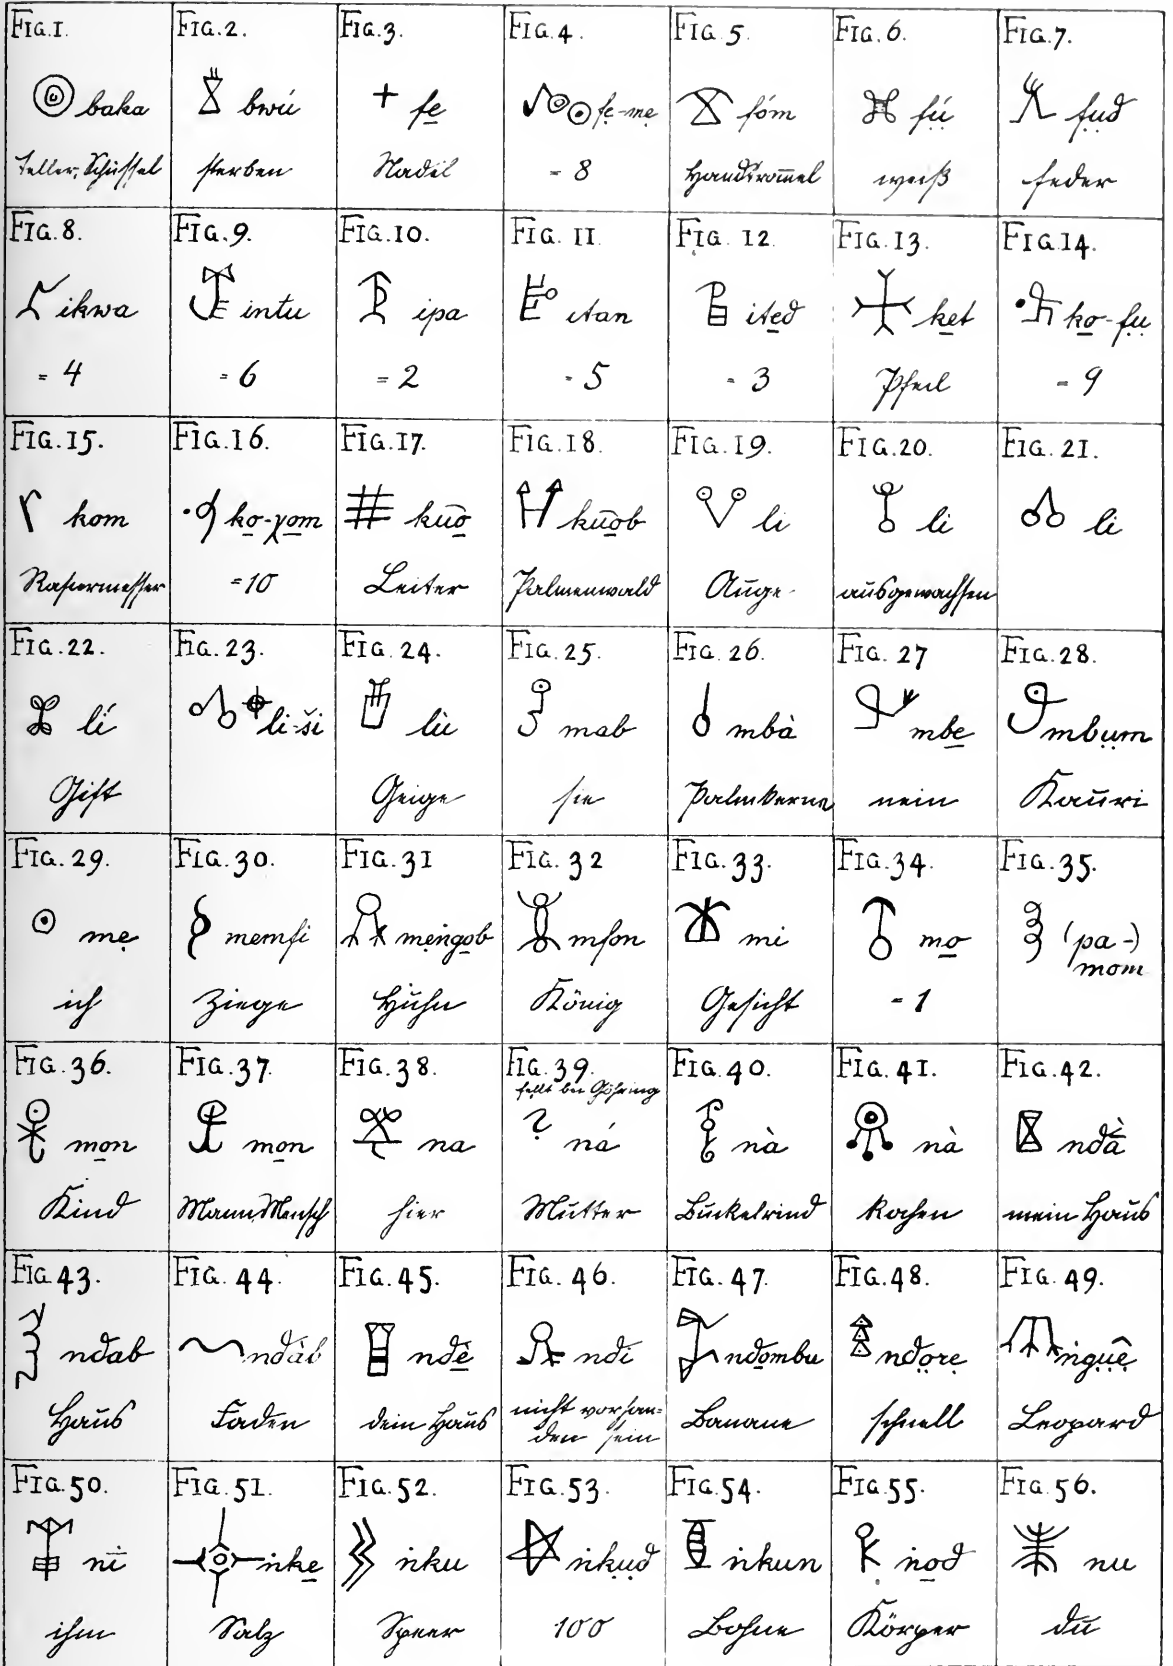 FIG.1.
baka
Teller, Schüssel
FIG.2.
bwú
sterben
FIG.3.
fe̱
Nadel
FIG.4.
fẹ-mẹ
= 8
FIG.5.
fóm
Handtrom̅el
FIG.6.
fụ́
weiß
FIG.7.
fụd
Feder
FIG.8.
ikwa
= 4
FIG.9.
intu
= 6
FIG.10.
ipa
= 2
FIG.11
itan
= 5
FIG.12
ite̱d
= 3
FIG.13.
ke̱t
Pfeil
FIG.14.
ko̱-fụ
= 9
FIG.15.
kom
Rasiermesser
FIG.16.
ko̱-γo̱m
=10
FIG.17.
kūo̱
Leiter
FIG.18.
kūo̱b
Palmenwald
FIG.19.
li
Auge
FIG.20.
li
ausgewachsen
FIG.21.
li
FIG.22.
lí
Gift
FIG.23.
li-ši
FIG.24.
lù
Geige
FIG.25.
mab
sie
FIG.26.
mbà
Palmkerne
FIG.27
mbe̱
nein
FIG.28.
mbụm
Kauri
FIG.29.
mẹ
ich
FIG.30.
memfi
Ziege
FIG.31
mẹngo̱b
Huhn
FIG.32
mfon
König
FIG.33.
mi
Gesicht
FIG.34.
mo̱
= 1
FIG.35.
(pa-)
mom
FIG.36.
mo̱n
Kind
FIG.37.
mo̱n
Mann, Mensch
FIG.38.
na
hier
FIG.39.
fehlt bei Göhring
? ná
Mutter
FIG.40.
nà
Buckelrind
FIG.41.
nà
kochen
FIG.42.
ndà
mein Haus
FIG.43.
ndab
Haus
FIG.44.
ndáb
Faden
FIG.45.
ndè̱
dein Haus
FIG.46.
ndi
nicht vorhan=
den sein
FIG.47.
ndo̱mbu
Banane
FIG.48.
ndọrẹ
schnell
FIG.49.
ṅguệ
Leopard
FIG.50.
nī
ihm
FIG.51.
ṅke̱
Salz
FIG.52.
ṅku
Speer
FIG.53.
ṅkụd
100
FIG.54.
ṅkun
Bohne
FIG.55.
ṅo̱d
Körper
FIG.56.
nu
du